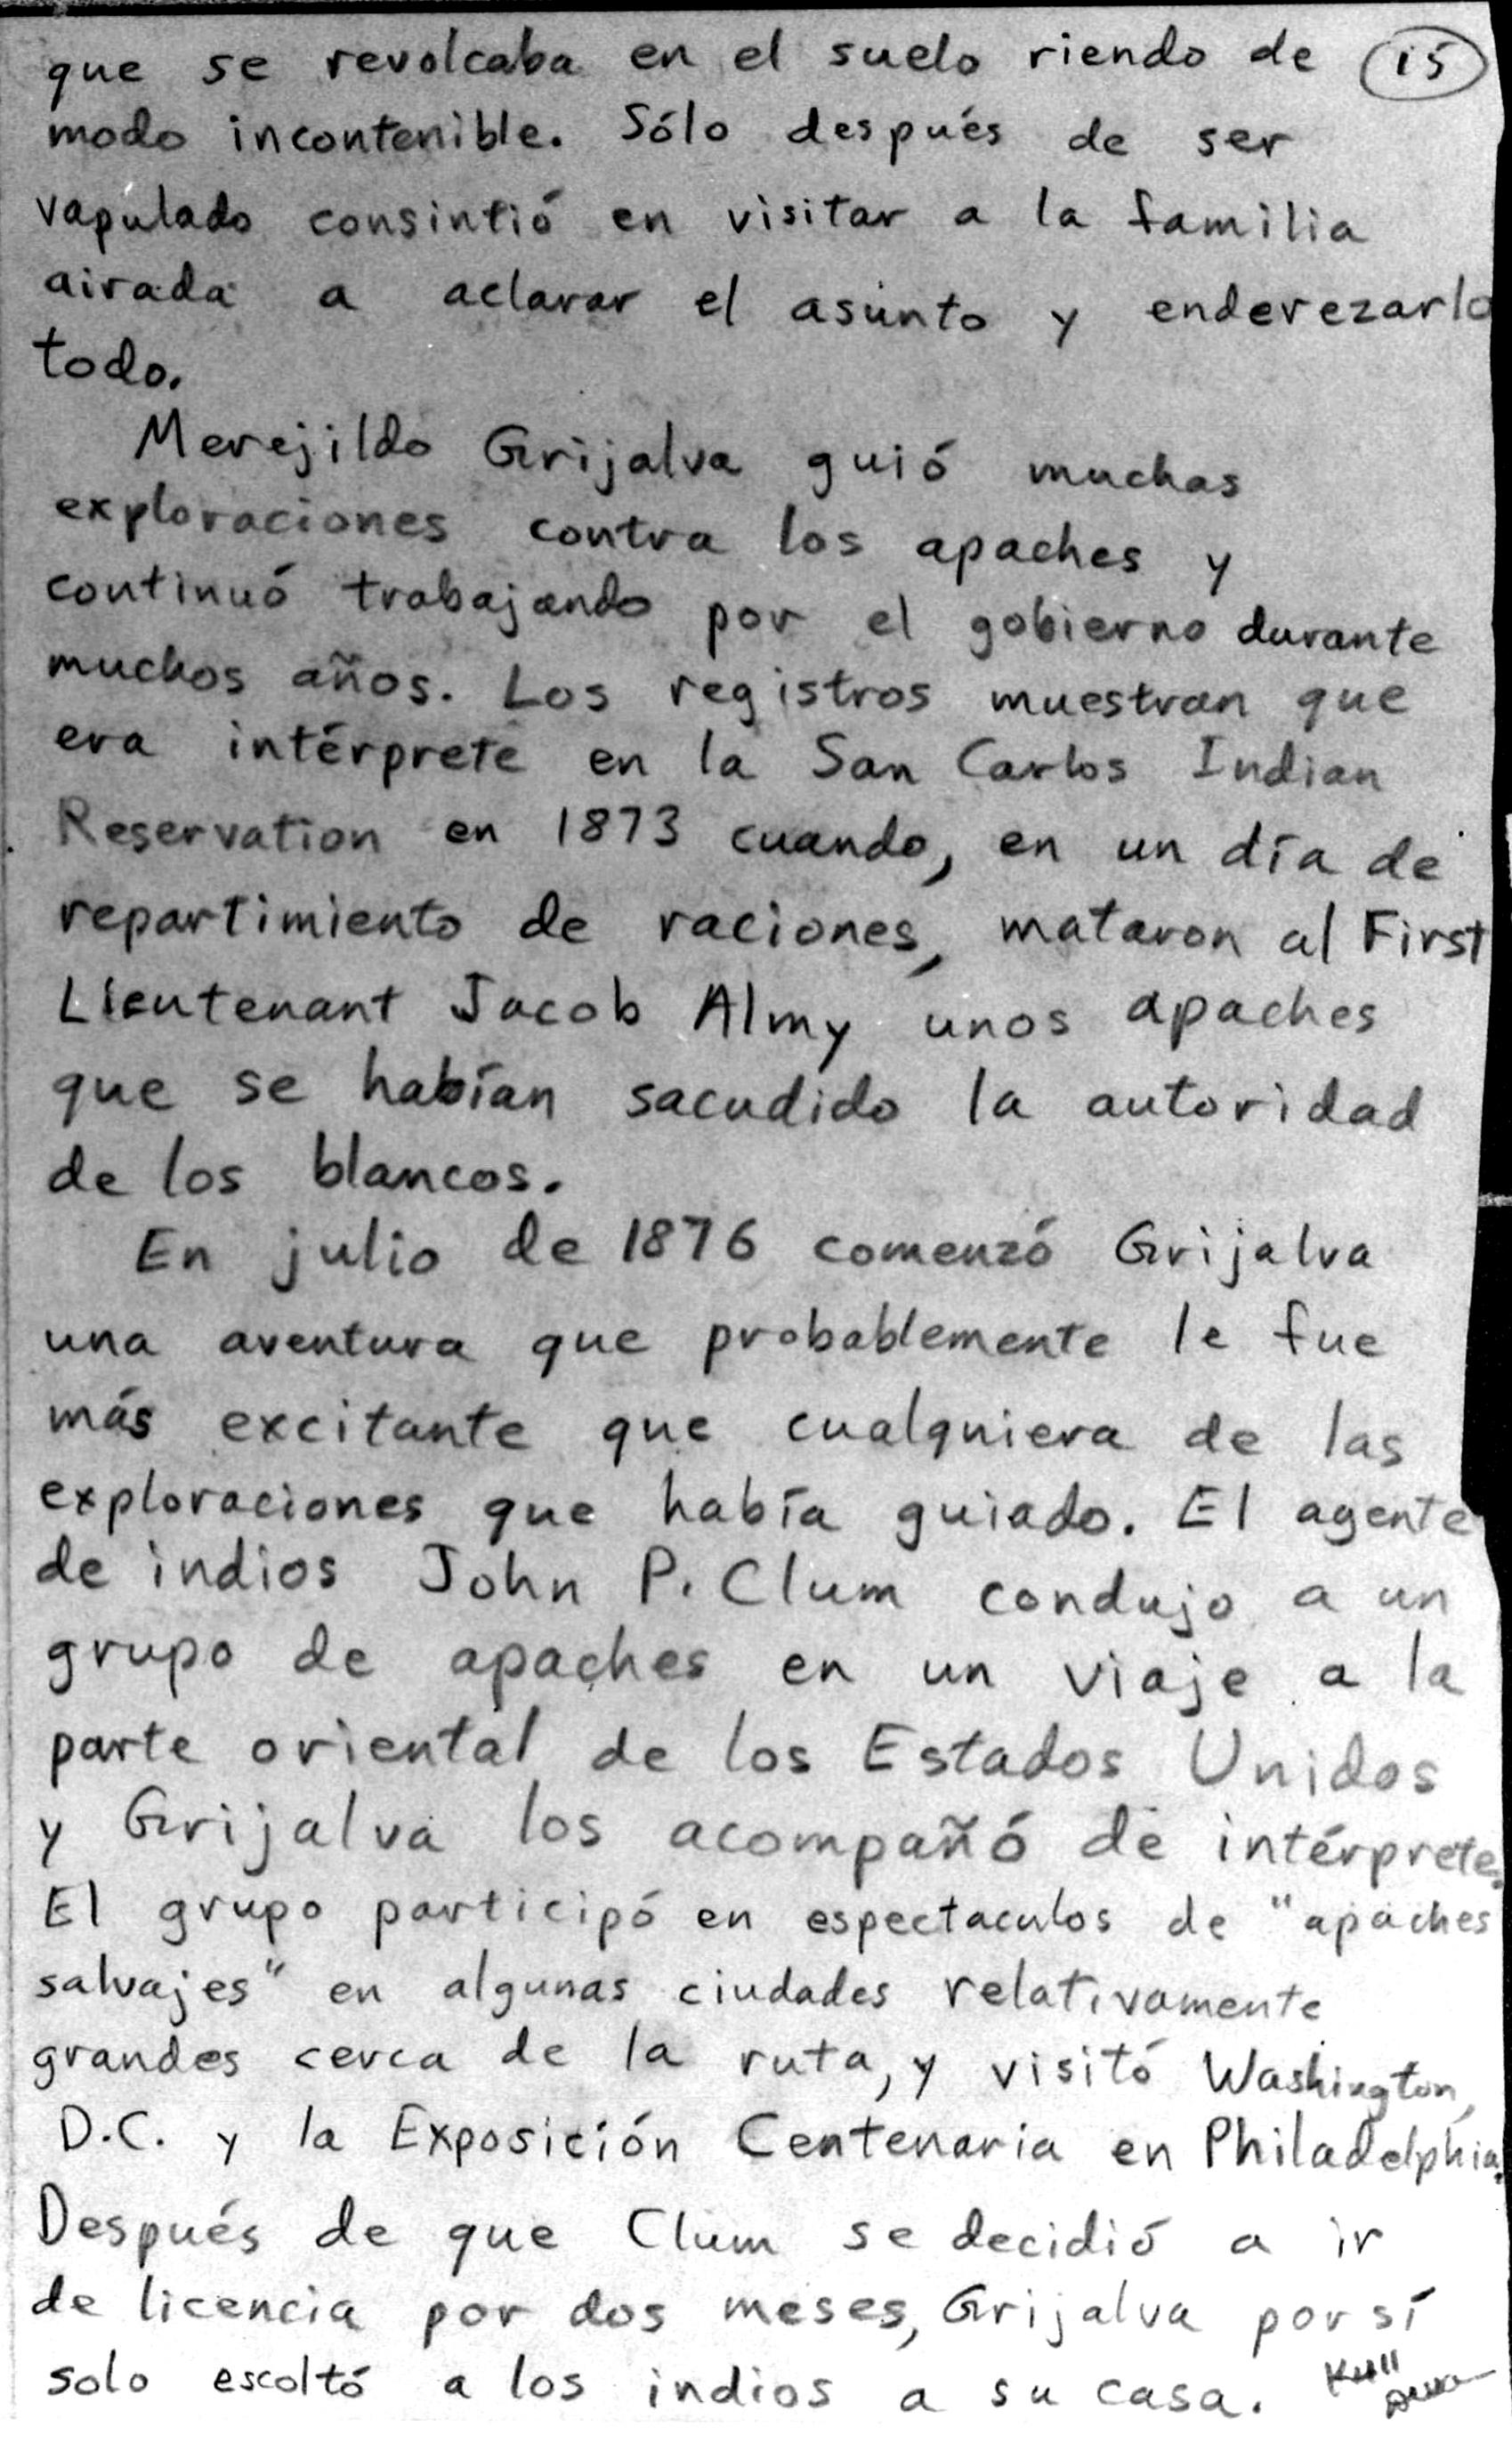 que se revolcaba en el suelo riendo de 15
modo incontenible. Sólo después de ser
vapulado consintió en visitar a la familia
airada a aclarar el asunto y enderezarlo
todo.
Merejildo Grijalva guió muchas
exploraciones contra los apaches y
continuó trabajando por el gobierno durante
muchos años. Los registros muestran que
era intérprete en la San Carlos Indian
Reservation en 1873 cuando, en un día de
repartimiento de raciones, mataron al First
Lieutenant Jacob Almy unos apaches
que se habían sacudido la autoridad
de los blancos.
En julio de 1876 comenzó Grijalva
una aventura que probablemente le fue
más excitante que cualquiera de las
exploraciones que había guiado. El agente
de indios John P. Clum condujo a un
grupo de apaches en un viaje a la
parte oriental de los Estados Unidos
y Grijalva los acompañó de intérprete.
El grupo participó en espectaculos de "apaches
salvajes" en algunas ciudades relativamente
grandes cerca de la ruta, y visitó Washington,
D.C. y la Exposición Centenaria en Philadelphia.
Después de que Clum se decidió a ir
de licencia por dos meses, Grijalva por sí
solo escoltó a los indios a su casa.